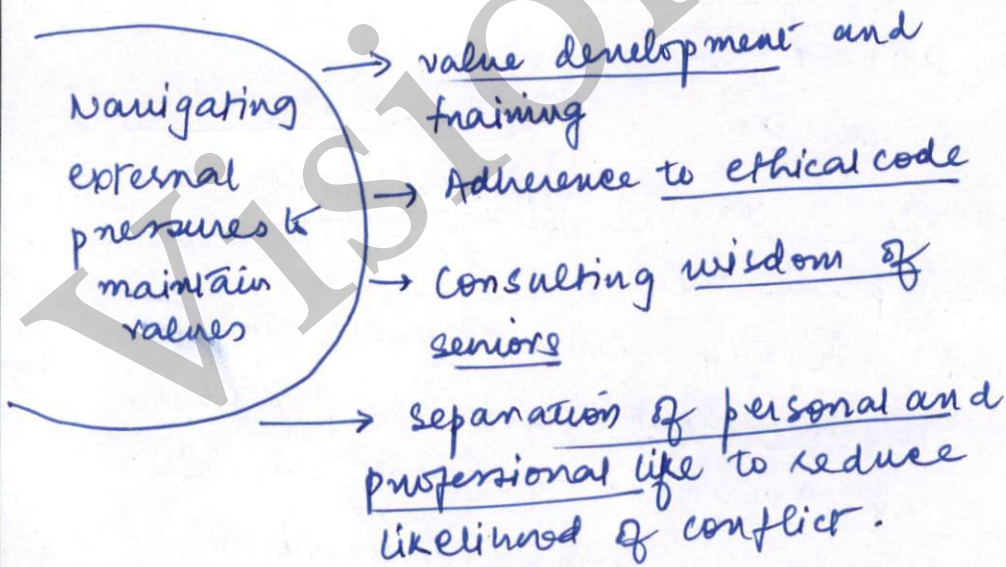 Navigating
external
pressures to
maintain
values
→ value development and
training
→ Adherence to ethical code
→ Consulting wisdom of
seniors
→ separation of personal and
professional life to reduce
likelihood of conflict.
Vision